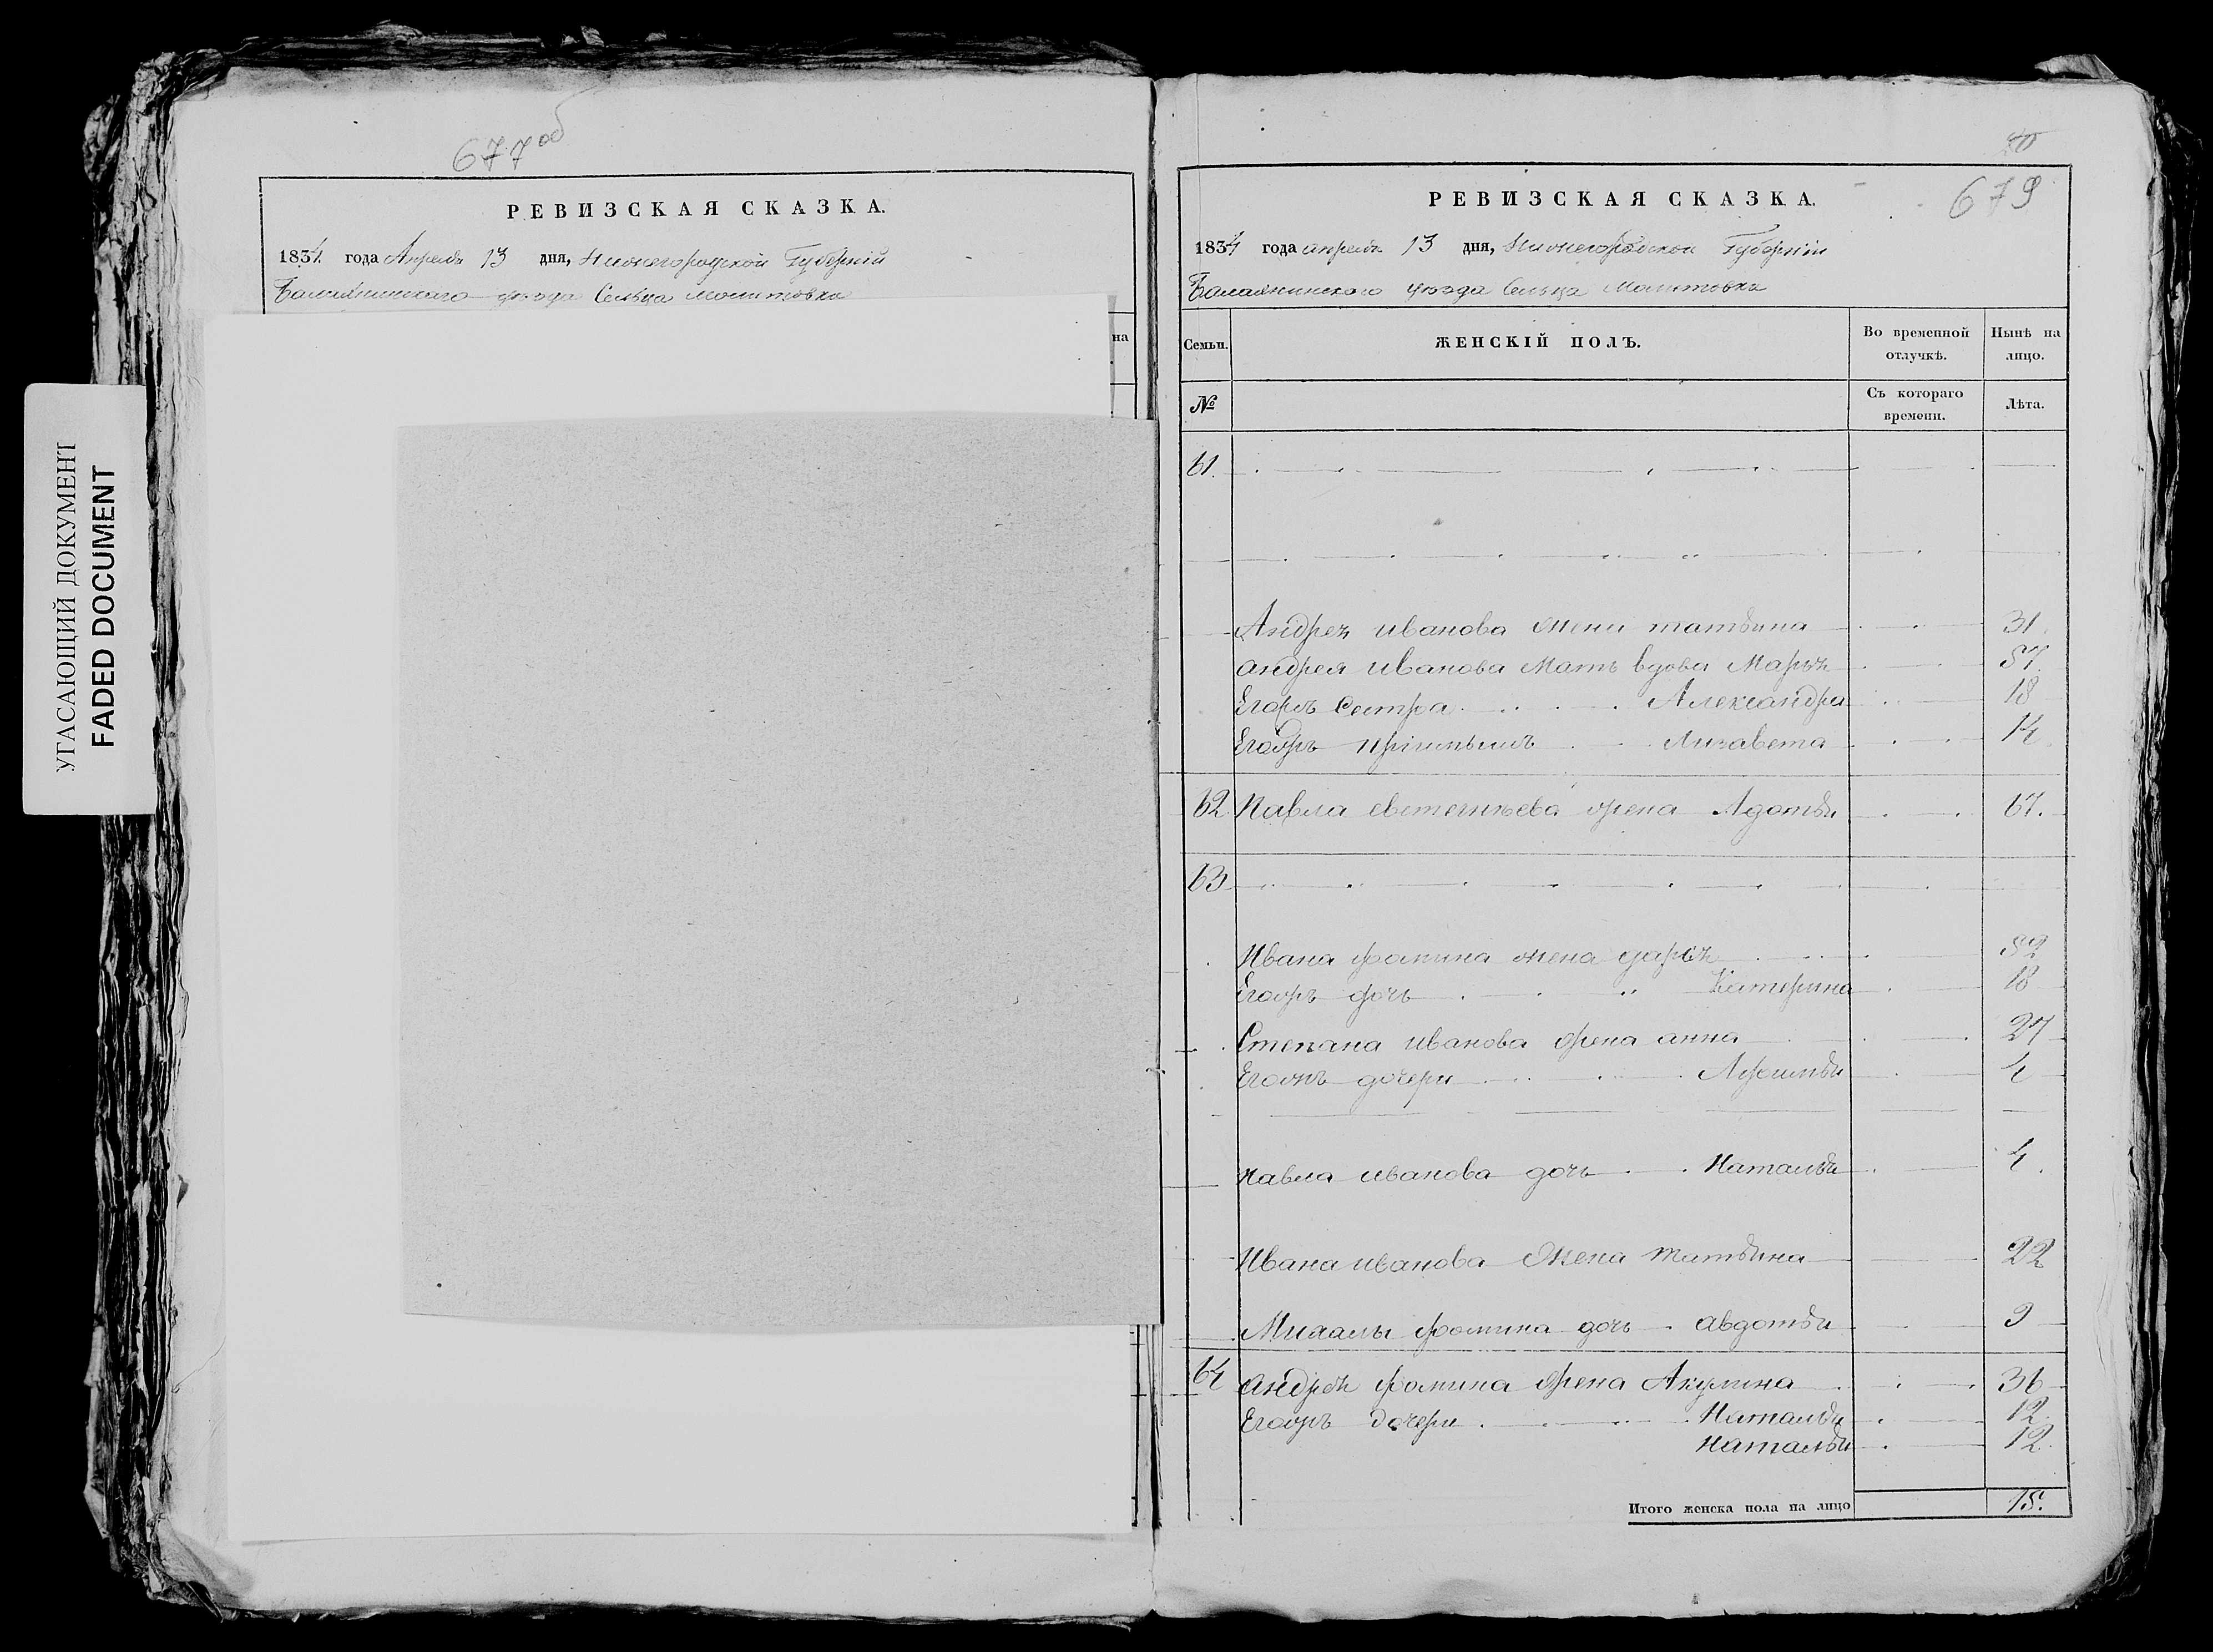 УГАСАЮЩИЙ ДОКУМЕНТ
FADED DOCUMENT
677 об
РЕВИЗСКАЯ СКАЗКА.
1834 года Апреля 13 дня, Нижегородской Губернiи
Балахнинскаго уѣзда Сельца Молитовки
на
679
РЕВИЗСКАЯ СКАЗКА.
1834 года апреля 13 дня, Нижегородской Губернiи
Балахнинского уѣзда Сельца Молитовки
Семьи. ЖЕНСКIЙ ПОЛЪ. Во временной отлучкѣ. Нынѣ на лицо.
№ Съ котораго времени. Лѣта.
61.
Андрея иванова жена татьяна 31.
андрея иванова Мать вдова Марья 57.
Егоръ Сестра Александра 18
Егоръ Лизавета 14.
62 Павла жена Адотья 67.
63
Ивана фомина жена дарья 52
Егоръ дочь Катерина 18
Степана иванова жена анна 27
Егоръ дочери Афимья 4
Павла иванова дочь Наталья 4.
Ивана иванова Жена татьяна 22
Михаилы фомина дочь авдотья 9
64 андрея фомина жена Акулина 36
Егоръ дочери Наталья 12.
Наталья 12.
Итого женска пола на лицо 15.